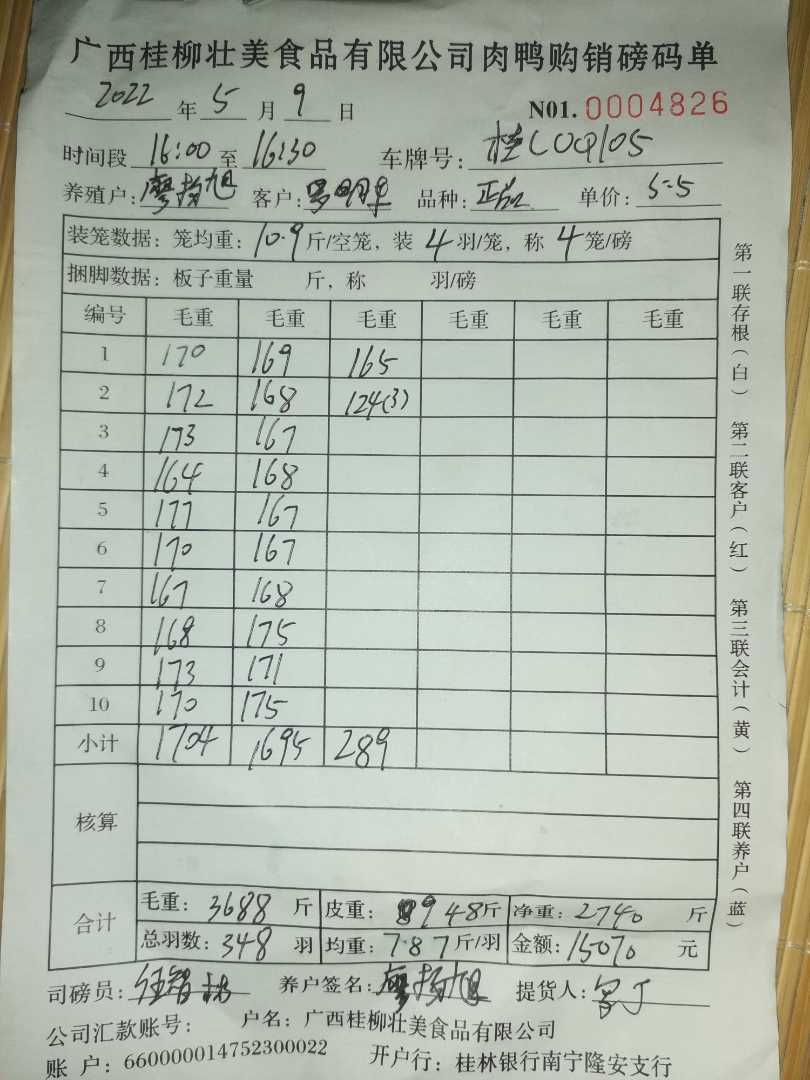 广西桂柳壮美食品有限公司肉鸭购销磅码单
2022 年 5 月 9 日 N01. 0004826
时间段 16:00 至 16:30 车牌号:
养殖户: 廖扬旭 客户: 品种: 单价: 5.5
装笼数据: 笼均重: 10.9 斤/空笼, 装 4 羽/笼, 称 4 笼/磅
捆脚数据: 板子重量 斤, 称 羽/磅
编号 毛重 毛重 毛重 毛重 毛重 毛重
1 170 169 165
2 172 168 124(3)
3 173 167
4 164 168
5 177 167
6 170 167
7 167 168
8 168 175
9 173 171
10 170 175
小计 1704 1695 289
核算
合计
毛重: 3688 斤 皮重: 948斤 净重: 2740 斤
总羽数: 348 羽 均重: 7.87斤/羽 金额: 15070 元
司磅员: 养户签名: 廖扬旭 提货人:
公司汇款账号: 户名: 广西桂柳壮美食品有限公司
账 户: 660000014752300022 开户行: 桂林银行南宁隆安支行
第一联存根(白) 第二联客户(红) 第三联会计(黄) 第四联养户(蓝)